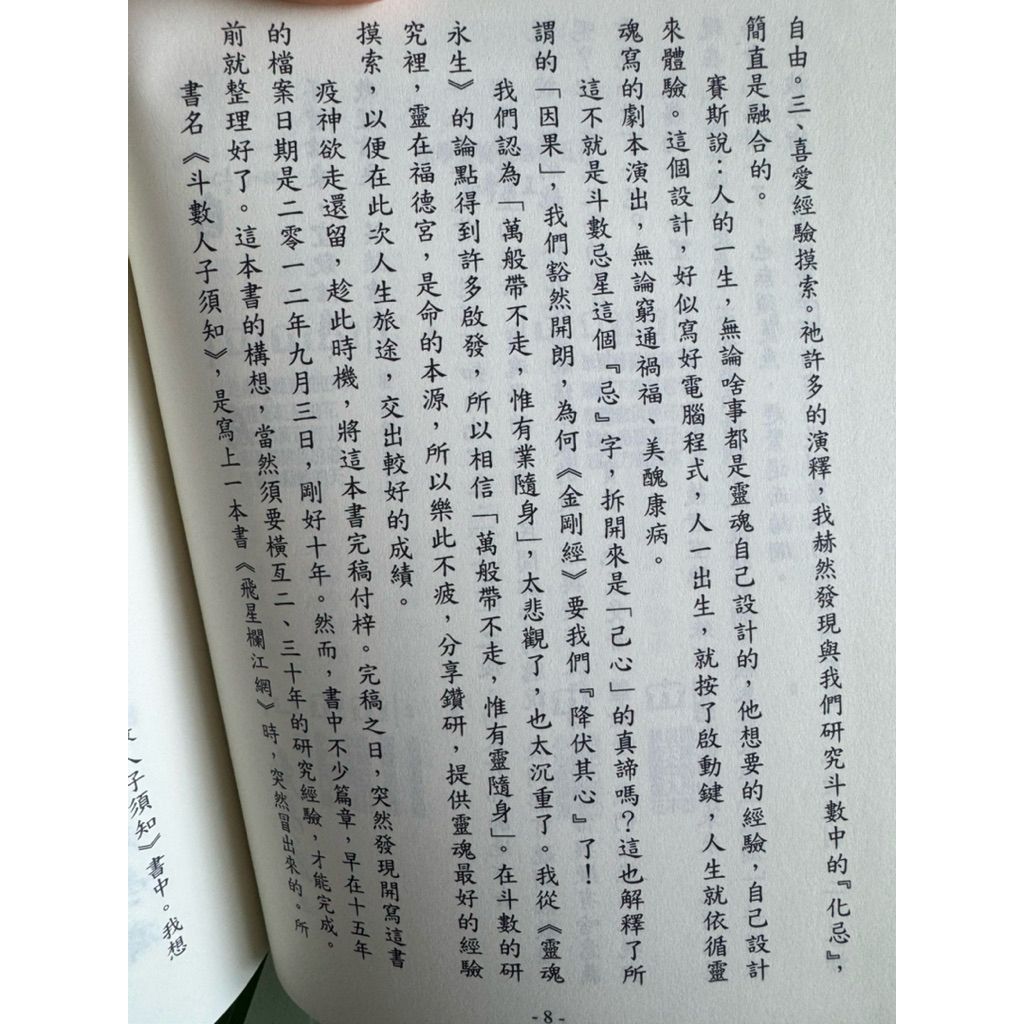 自由。三、喜愛經驗摸索。祂許多的演釋，我赫然發現與我們研究斗數中的『化忌』，
簡直是融合的。
賽斯說：人的一生，無論啥事都是靈魂自己設計的，他想要的經驗，自己設計
來體驗。這個設計，好似寫好電腦程式，人一出生，就按了啟動鍵，人生就依循靈
魂寫的劇本演出，無論窮通禍福、美醜康病。
這不就是斗數忌星這個『忌』字，拆開來是「己心」的真諦嗎？這也解釋了所
謂的「因果」，我們豁然開朗，為何《金剛經》要我們『降伏其心』了！
我們認為「萬般帶不走，惟有業隨身」，太悲觀了，也太沉重了。我從《靈魂
永生》的論點得到許多啟發，所以相信「萬般帶不走，惟有靈隨身」。在斗數的研
究裡，靈在福德宮，是命的本源，所以樂此不疲，分享鑽研，提供靈魂最好的經驗
摸索，以便在此次人生旅途，交出較好的成績。
疫神欲走還留，趁此時機，將這本書完稿付梓。完稿之日，突然發現開寫這書
的檔案日期是二零一二年九月三日，剛好十年。然而，書中不少篇章，早在十五年
前就整理好了。這本書的構想，當然須要橫亙二、三十年的研究經驗，才能完成。
書名《斗數人子須知》，是寫上一本書《飛星欄江網》時，突然冒出來的。所
- 8 -
人子須知》書中。我想